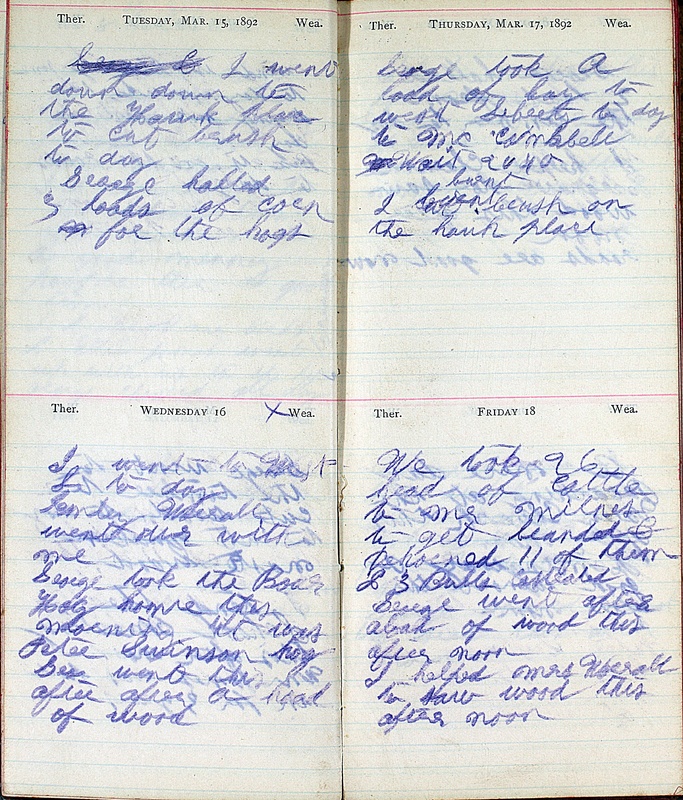 Ther. TUESDAY, MAR. 15, 1892 Wea.
I went
down down to
the Hauk place
to cut brush
to day
George halled
3 loads of corn
for the hogs
Ther. WEDNESDAY 16 X Wea.
I went to West
L to day
Merall
went our with
me
George took the Boar
Hog home this
morning it was
Peter Swinson hog
Geo went this
after after a load
of wood
Ther. THURSDAY, MAR. 17, 1892 Wea.
George took A
load of hay to
west Liberty to day
to Mc Cambell
Wait 2440
burnt
I brush on
the hauk place
Ther. FRIDAY 18 Wea.
We took 26
head of Cattle
to mr milnes
to get branded &
dehorned 11 of them
& 3 Bulls
George went after
a load of wood this
after noon
I helped mrs Merall
to saw wood this
after noon